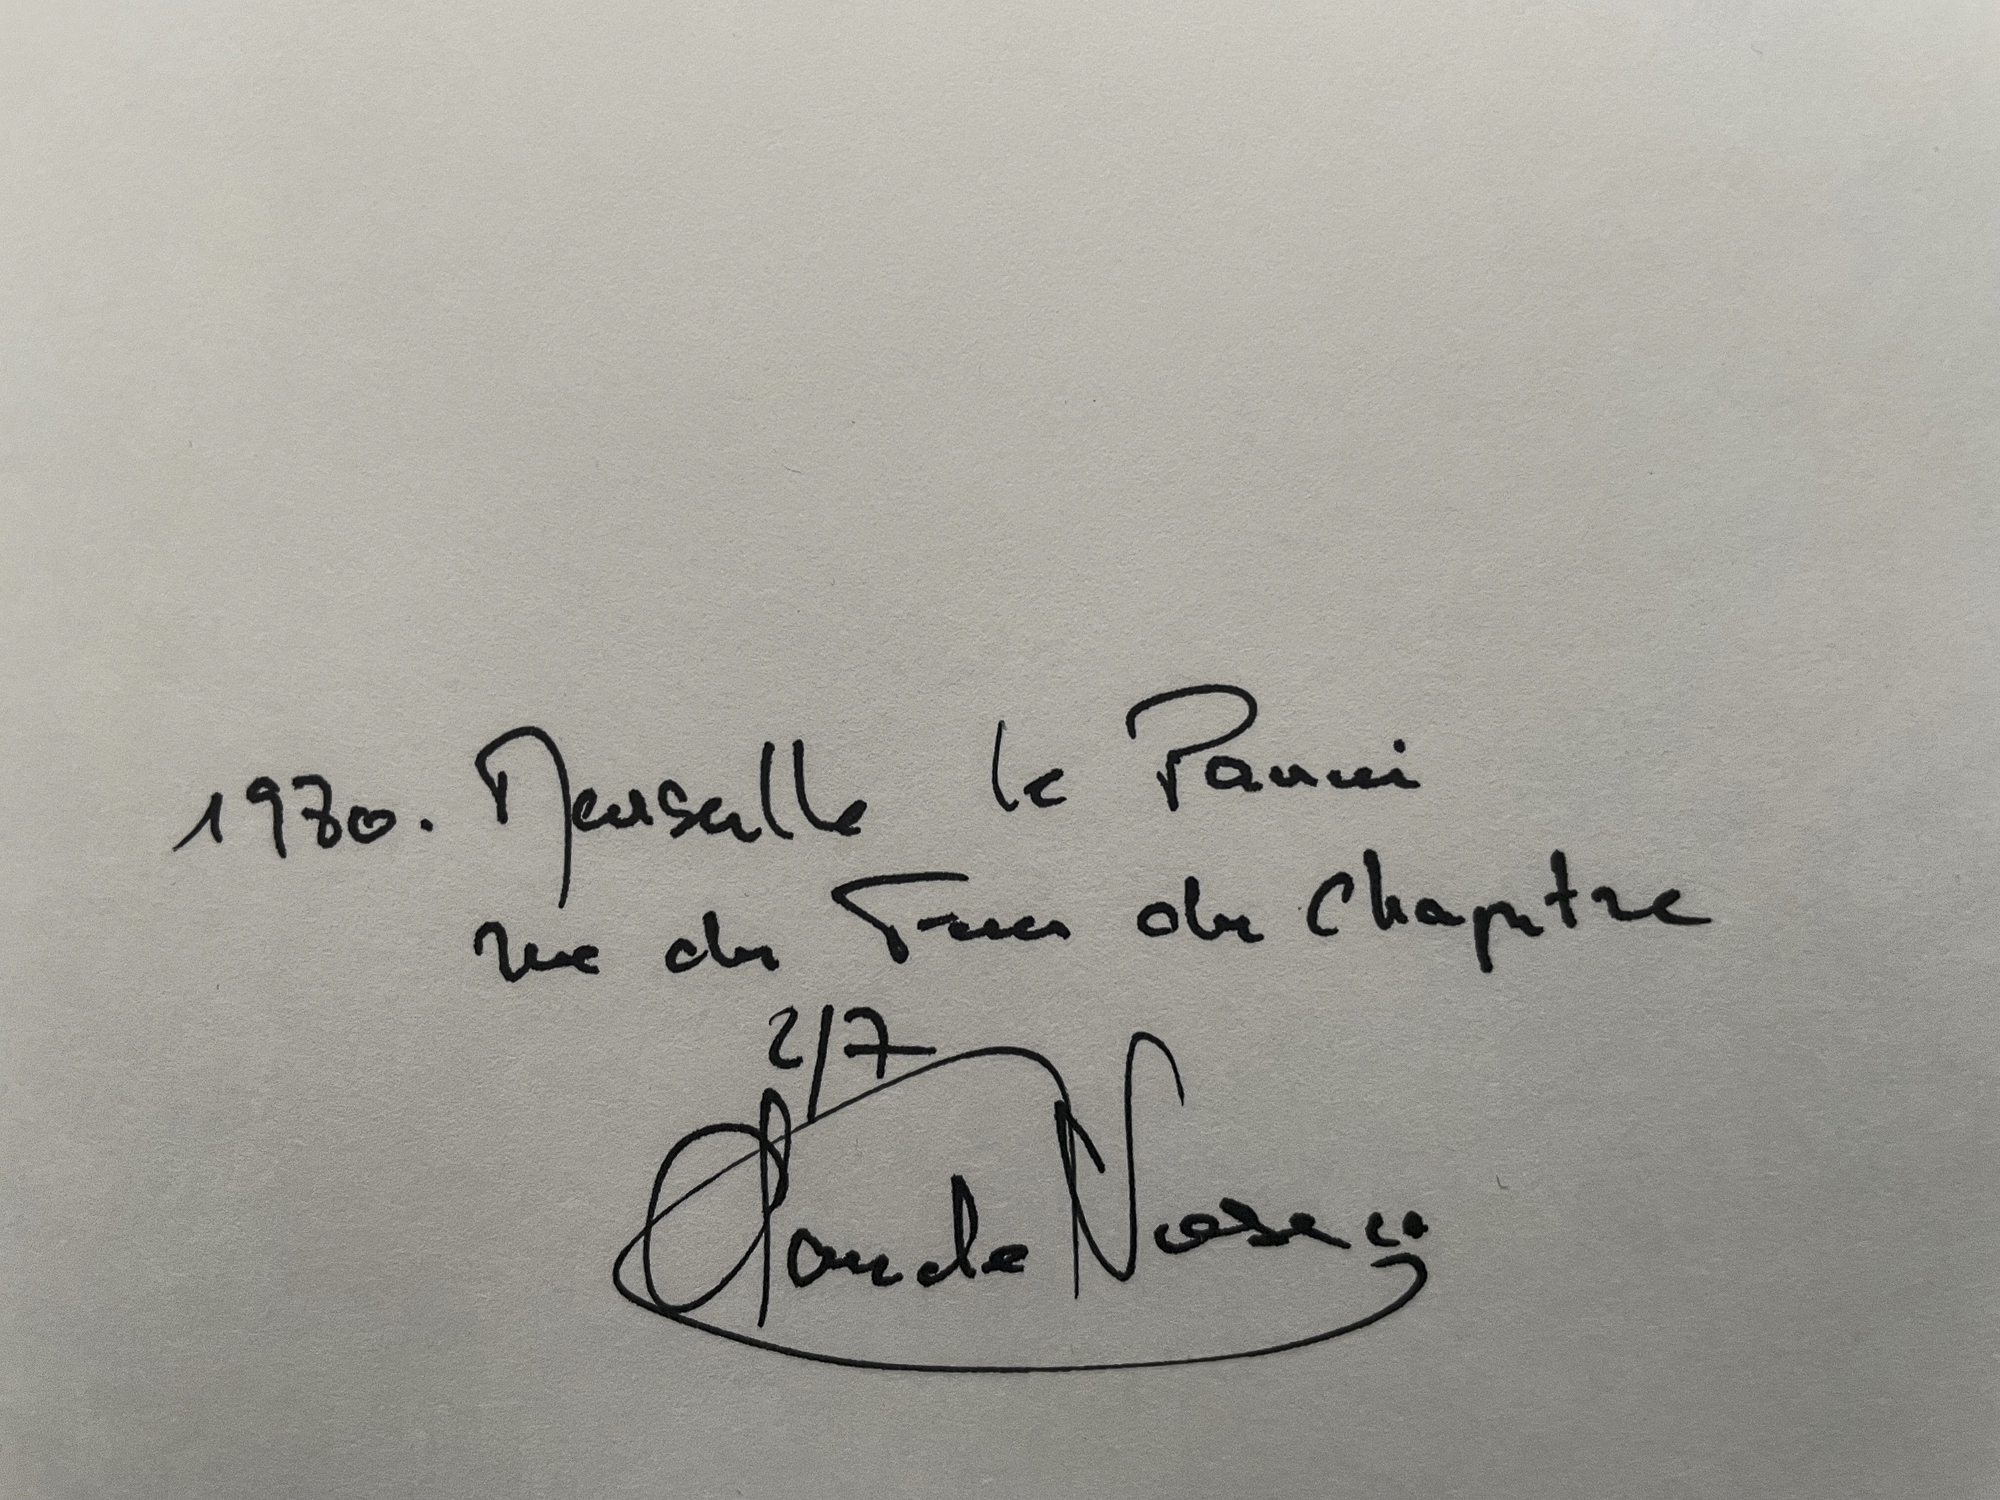 1980. Marseille le Panier
rue du Four du Chapitre
2/7
Claude